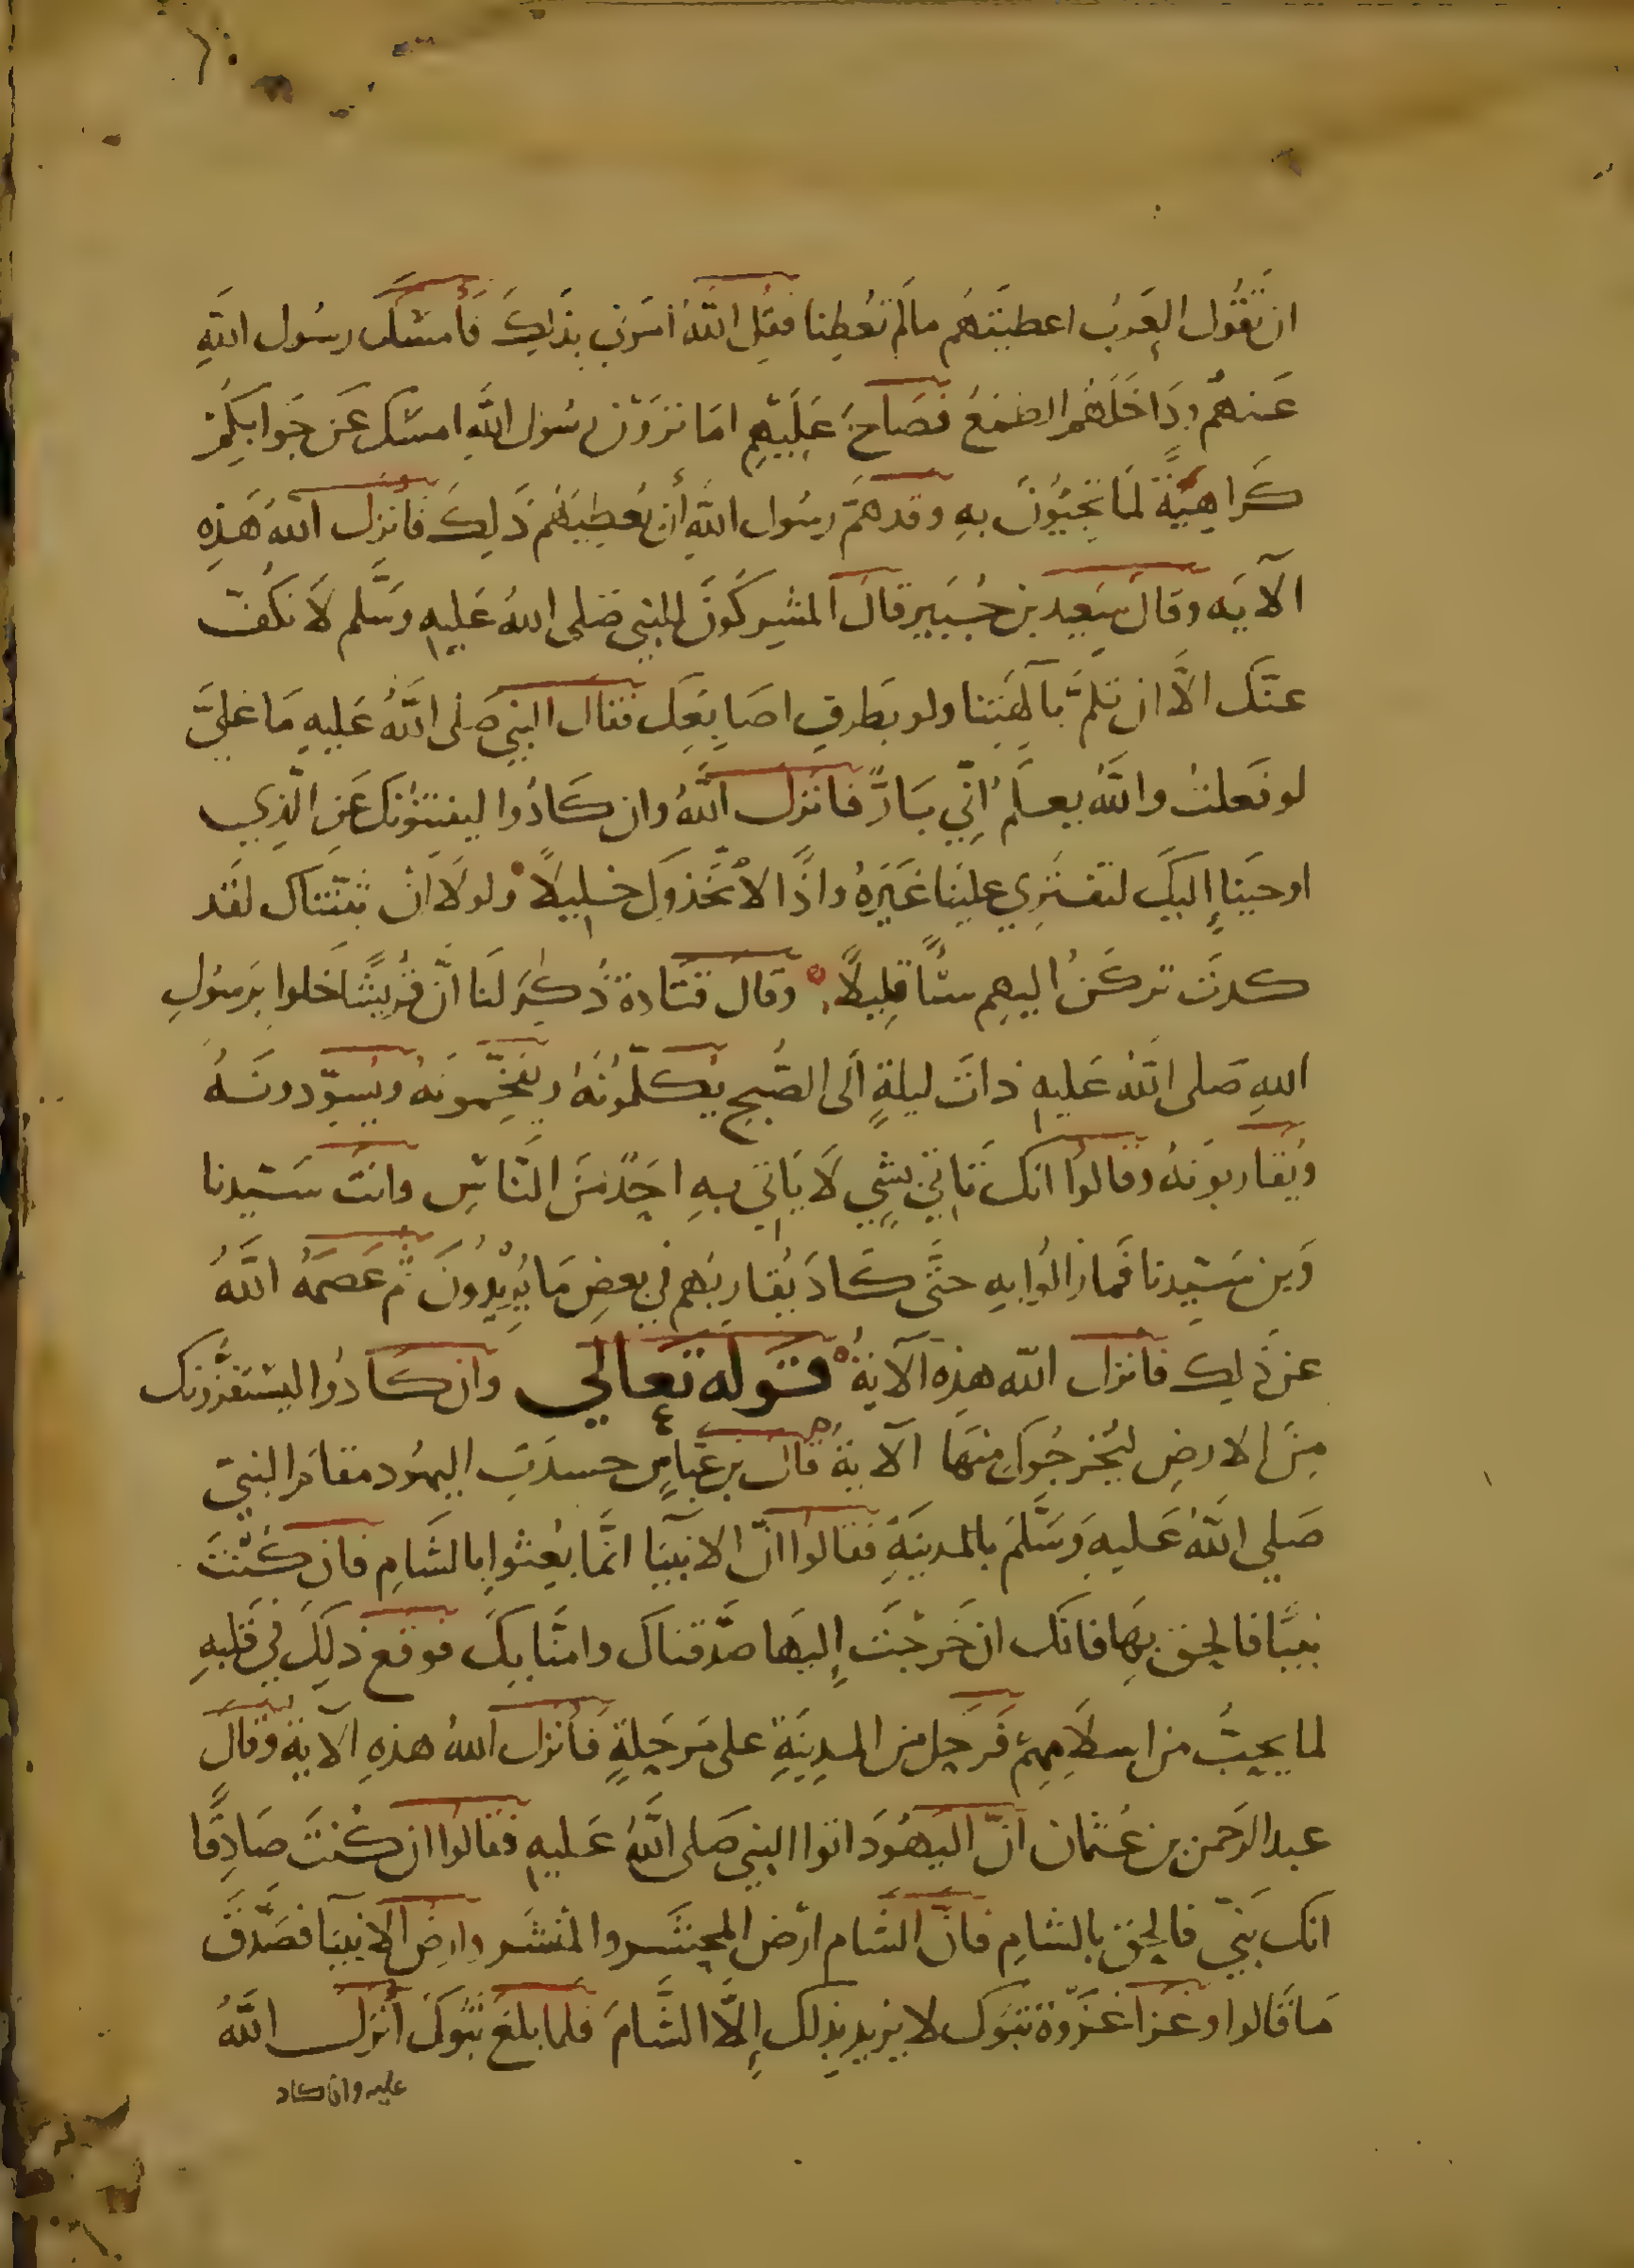 ان تقُول العَربُ اعطيتَهُم مالم تُعطِنا فقُل اللّهُ أمَرَني بذَلِكَ فَأمسَكَ رسُول اللَّهِ
عَنهُم ودَاخَلَهُم الطمَعُ فصَاحَ عَلَيهِم امَا تَرَوْنَ رسُول اللَّهِ امسَك عَن جَوابكُمْ
كَراهِيَّةً لمَا تجيُونَ بهِ وقد همَّ رسُول اللَّهِ أن يُعطِيَهُم ذَلِكَ فانزل اللهُ هَذِهِ
الآيَه وقال سَعِيد بن جُبَير قال المشركُونَ للنبي صَلى اللهُ عَليهِ وسَلَّم لَا نكُفّ
عنَّك الاَّ ان تلمَّ بآلهَتِنا ولو بَطرفِ اصَابِعِك فقال النبي صَلى اللَّهُ عَليهِ مَا عَليَّ
لو فعَلتُ واللَّهُ يعلَمُ انِّي بَارٌّ فانزل اللَّهُ وان كَادُوا ليفتنُونَك عَنِ الّذِي
اوحَينا إليكَ لتفترِي علينا غَيَرهُ واذًا لاَتَّخَذوكَ خليلاً ولولَا أنْ ثبّتناك لقَد
كدتَ تركَنُ اليهِم شيًا قليلاً وقال قتَادة ذُكِرَ لنَا انّ قُريشًا خَلوا برَسُولِ
اللهِ صَلى اللَّهُ عَليهِ ذاتَ ليلةٍ الَى الصُبح يُكلّمُونَهُ ويُفَخِّمونَهُ ويُسوّدونَهُ
ويُقاربوَنهُ وقالُوا انكَ تَاتِي بشَيٍ لَا يَاتي بهِ احَدٌ مَن النَّاسِ وانتَ سَيّدنا
وَبن سَيّدنا فمازالُوا بهِ حتَّى كادَ يُقاربَهم في بعضِ مَا يُريْدُونَ ثم عَصمَهُ اللَّهُ
عن ذَلِك فانزل اللّه هذِه الآيةُ قوله تعالي وان كادُوا ليستفزُّونك
مِنَ الارضِ ليُخرجُوكَ مِنهَا الآيةُ قال بن عَبّاسٍ حسدَتِ اليهُود مقامَ النبيّ
صَلي اللَّهُ عَليهِ وَسَلَّمَ بالمدينَةِ فقالوا انّ الانبيَا انَّما بُعِثوا بالشَامِ فان كُنتَ
نبيًّا فالحق بهَا فانَك ان خَرجْتَ إليهَا صدَّقناكَ وامنَّا بكَ فوقع ذلِكَ فِي قلبهِ
لما يحبُّ من اسلاَمِهِمْ فَرَحل من المدِينَةِ على مَرحَلةٍ فأنزل اللهُ هذهِ الآيةَ وقال
عبد الرَحمن بن عُثمان انّ اليهُودَ اتوا النبي صَلى اللَّهُ عَليهِ فقالوا ان كُنتَ صَادِقًا
انك نَبيّ فالحق بالشامِ فانّ الشام ارْض المحشَر والمنشَر وارضُ الانبيَا فصَدَّقَ
مَا قَالوا وغزا غَزوةَ تبُوك لا يريد بذلك إلَّا الشَّامَ فلما بلغ تبُوكَ انزل اللَّهُ
عليه وان كاد